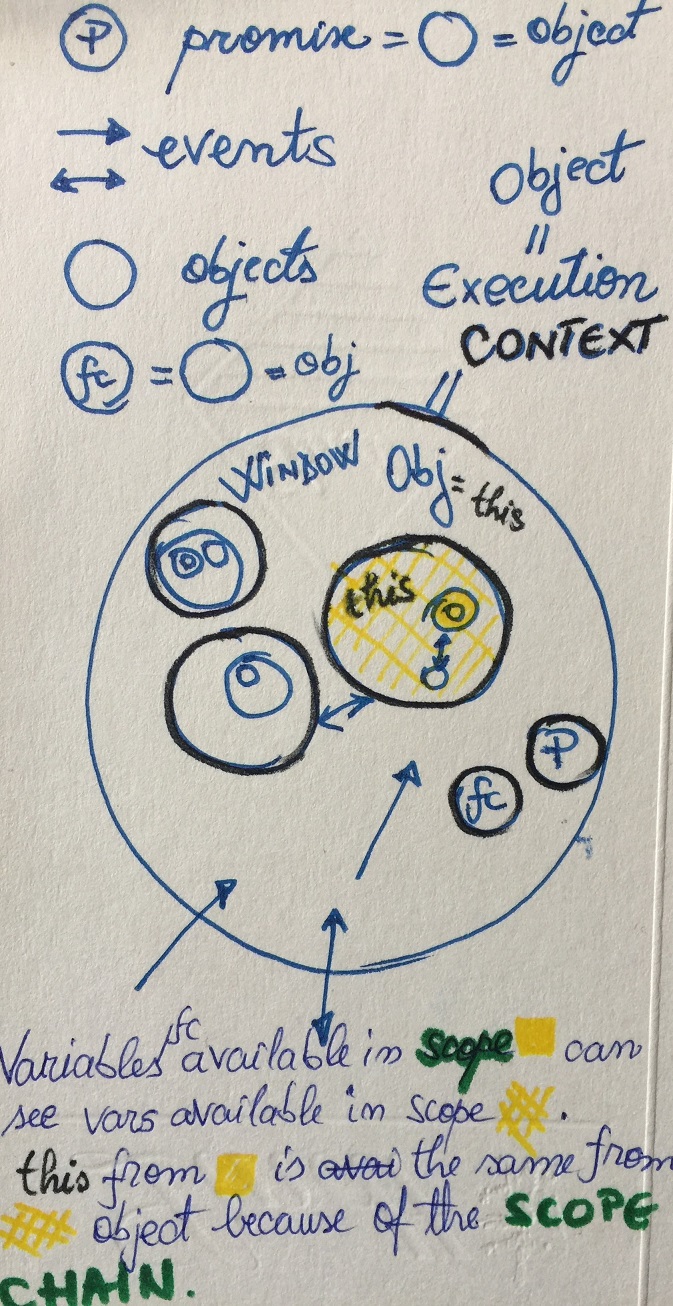 P promise = = object
events
Object
=
objects
Execution
CONTEXT
fc = = obj
=
WINDOW Obj = this
this
P
fc
fc
Variables available in scope can
see vars available in scope .
this from is avai the same from
object because of the SCOPE
CHAIN.